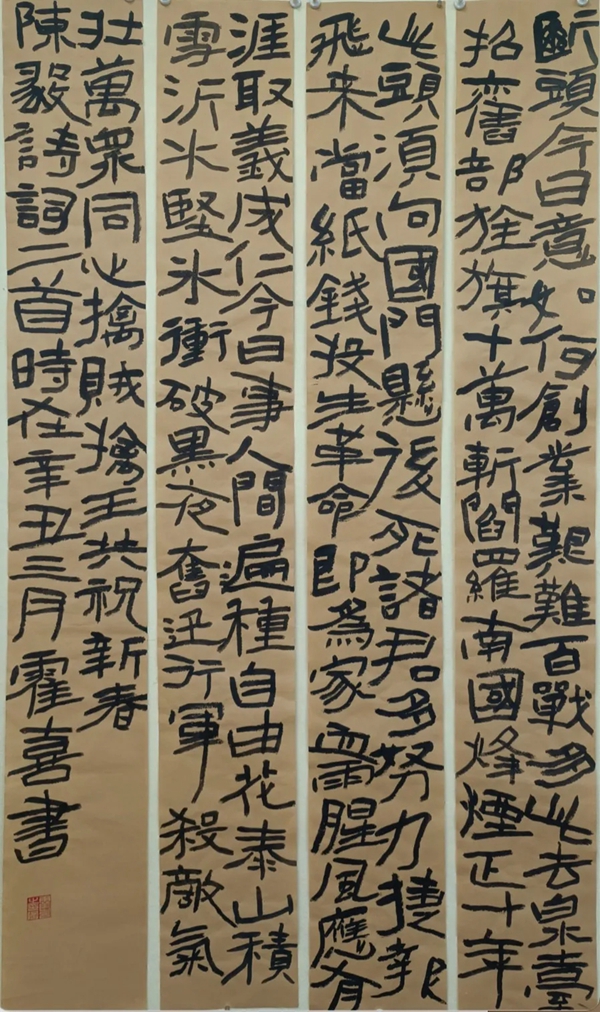 斷頭今日意如何創業艱難百戰多此去泉臺
招舊部旌旗十萬斬閻羅南國烽煙正十年
此頭須向國門懸後死諸君多努力捷報
飛来當紙錢投生革命即為家血雨腥風應有
涯取義成仁今日事人間遍種自由花泰山積
雪沂水堅冰衝破黑夜奮迅行軍殺敵氣
壯萬眾同心擒賊擒王共祝新春
陳毅詩詞二首時在辛丑三月霍喜書